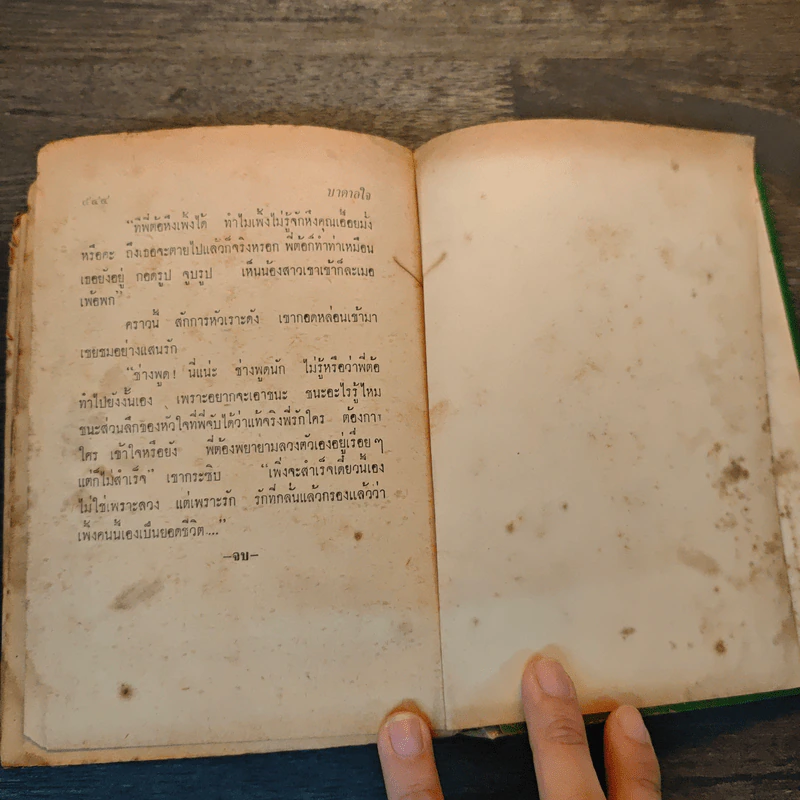 ๙๔๔ บาดาลใจ
"ทีพี่ต้อหึงเพ้งได้ ทำไมเพ้งไม่รู้จักหึงคุณเอื้อยมั่ง
หรือคะ ถึงเธอจะตายไปแล้วก็จริงหรอก พี่ต้อก็ทำท่าเหมือน
เธอยังอยู่ กอดรูป จูบรูป เห็นน้องสาวเขาเข้าก็ละเมอ
เพ้อพก"
คราวนี้ สักการหัวเราะดัง เขากอดหล่อนเข้ามา
เชยชมอย่างแสนรัก
"ช่างพูด! นี่แน่ะ ช่างพูดนัก ไม่รู้หรือว่าพี่ต้อ
ทำไปยังงั้นเอง เพราะอยากจะเอาชนะ ชนะอะไรรู้ไหม
ชนะส่วนลึกของหัวใจที่พี่จับได้ว่าแท้จริงพี่รักใคร ต้องการ
ใคร เข้าใจหรือยัง พี่ต้องพยายามลวงตัวเองอยู่เรื่อยๆ
แต่ก็ไม่สำเร็จ" เขากระซิบ "เพิ่งจะสำเร็จเดี๋ยวนี้เอง
ไม่ใช่เพราะลวง แต่เพราะรัก รักที่กลั่นแล้วกรองแล้วว่า
เพ้งคนนี้เองเป็นยอดชีวิต..."
—จบ—